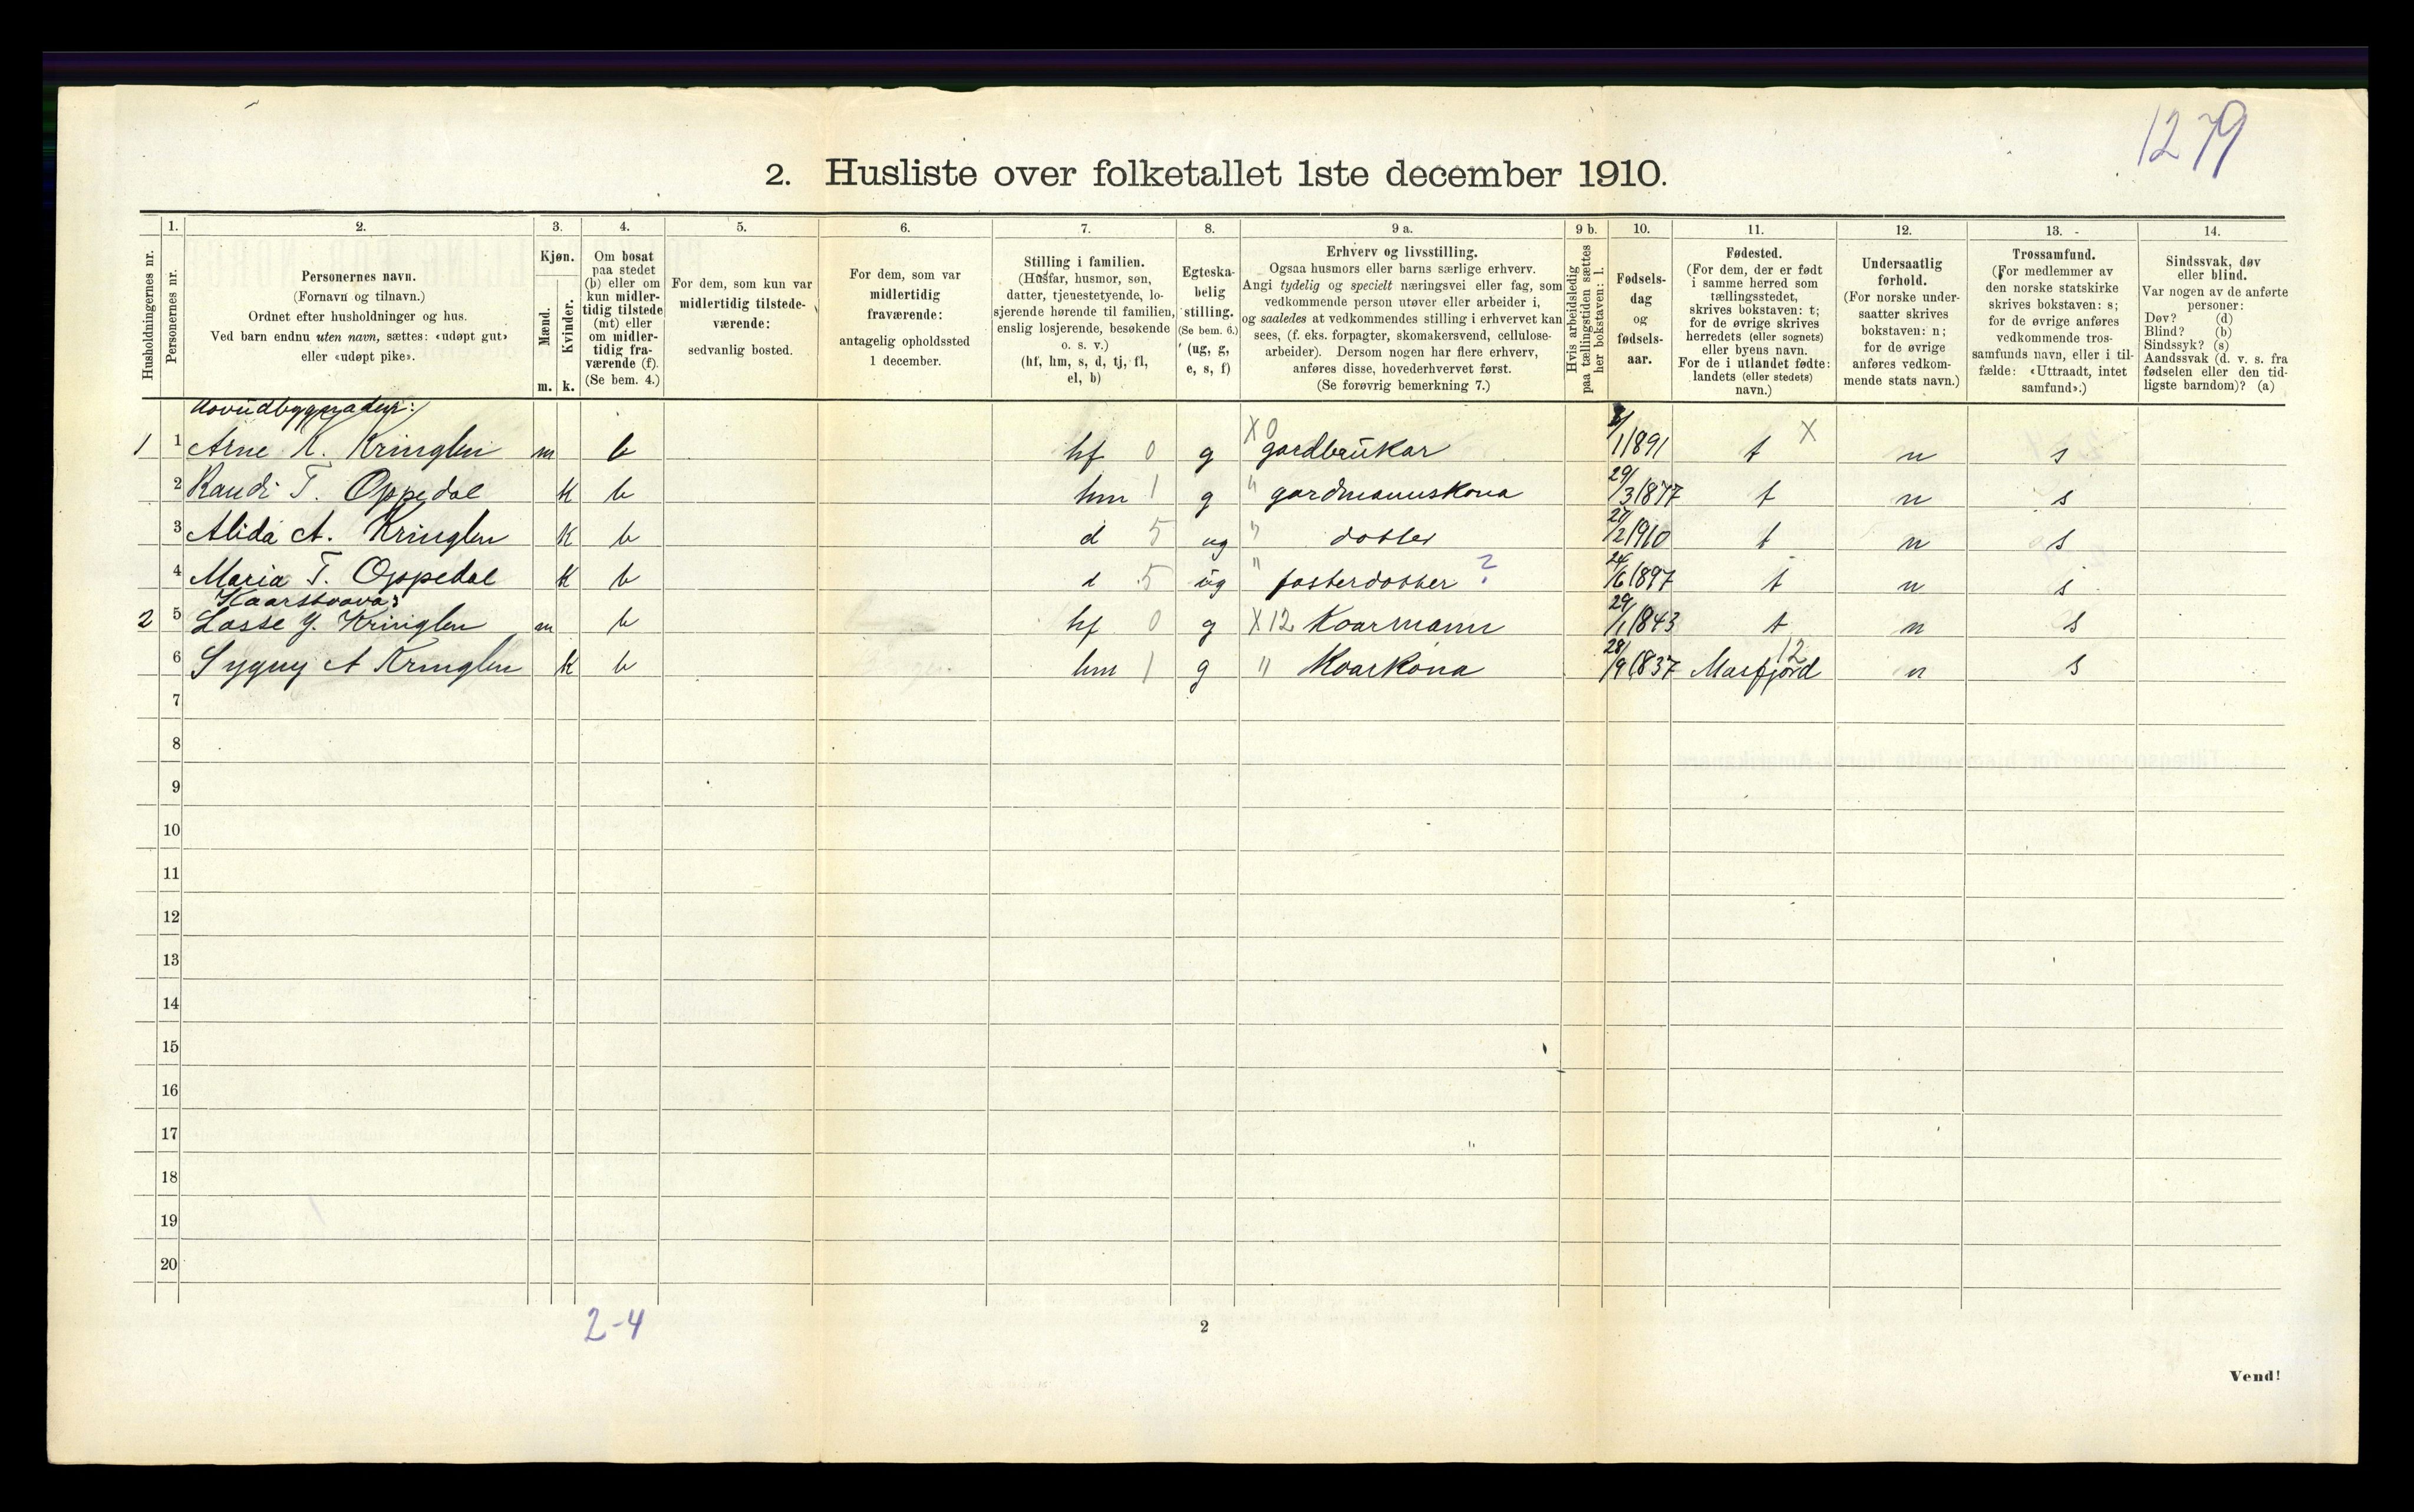 1279
2. Husliste over folketallet 1ste december 1910.
Husholdningernes nr.
1.
Personernes nr.
2.
Personernes navn.
(Fornavn og tilnavn.)
Ordnet efter husholdninger og hus.
Ved barn endnu uten navn, sættes: «udøpt gut»
eller «udøpt pike».
3.
Kjøn.
Mænd.
Kvinder.
m. k.
4.
Om bosat
paa stedet
(b) eller om
kun midler-
tidig tilstede
(mt) eller
om midler-
tidig fra-
værende (f).
(Se bem. 4.)
5.
For dem, som kun var
midlertidig tilstede-
værende:
sedvanlig bosted.
6.
For dem, som var
midlertidig
fraværende:
antagelig opholdssted
1 december.
7.
Stilling i familien.
(Husfar, husmor, søn,
datter, tjenestetyende, lo-
sjerende hørende til familien,
enslig losjerende, besøkende
o. s. v.)
(hf, hm, s, d, tj, fl,
el, b)
8.
Egteska-
belig
stilling.
(Se bem. 6.)
(ug, g,
e, s, f)
9 a.
Erhverv og livsstilling.
Ogsaa husmors eller barns særlige erhverv.
Angi tydelig og specielt næringsvei eller fag, som
vedkommende person utøver eller arbeider i,
og saaledes at vedkommendes stilling i erhvervet kan
sees, (f. eks. forpagter, skomakersvend, cellulose-
arbeider). Dersom nogen har flere erhverv,
anføres disse, hovederhvervet først.
(Se forøvrig bemerkning 7.)
9 b.
Hvis arbeidsledig
paa tællingstiden sættes
her bokstaven: l.
10.
Fødsels-
dag
og
fødsels-
aar.
11.
Fødested.
(For dem, der er født
i samme herred som
tællingsstedet,
skrives bokstaven: t;
for de øvrige skrives
herredets (eller sognets)
eller byens navn.
For de i utlandet fødte:
landets (eller stedets)
navn.)
12.
Undersaatlig
forhold.
(For norske under-
saatter skrives
bokstaven: n;
for de øvrige
anføres vedkom-
mende stats navn.)
13.
Trossamfund.
(For medlemmer av
den norske statskirke
skrives bokstaven: s;
for de øvrige anføres
vedkommende tros-
samfunds navn, eller i til-
fælde: «Uttraadt, intet
samfund».)
14.
Sindssvak, døv
eller blind.
Var nogen av de anførte
personer:
Døv? (d)
Blind? (b)
Sindssyk? (s)
Aandssvak (d. v. s. fra
fødselen eller den tid-
ligste barndom)? (a)
1 1 Arne K. Kringlen m b hf 0 g X0 gardbrukar /1 1891 t X n s
2 Randi T. Oppedal k b hm 1 g " gardmannskona 29/3 1877 t n s
3 Alida A. Kringlen k b d 5 ug " dotter 27/2 1910 t n s
4 Maria T. Oppedal k b d 5 ug " fosterdotter ? 24/6 1897 t n s
Kaarstoova:
2 5 Lasse G. Kringlen m b hf 0 g X 12 Koarmann 29/1 1843 t n s
6 Sygny A Kringlen k b hm 1 g " Koarkona 28/9 1837 Masfjord 12 n s
7
8
9
10
11
12
13
14
15
16
17
18
19
20
2-4
2
Vend!